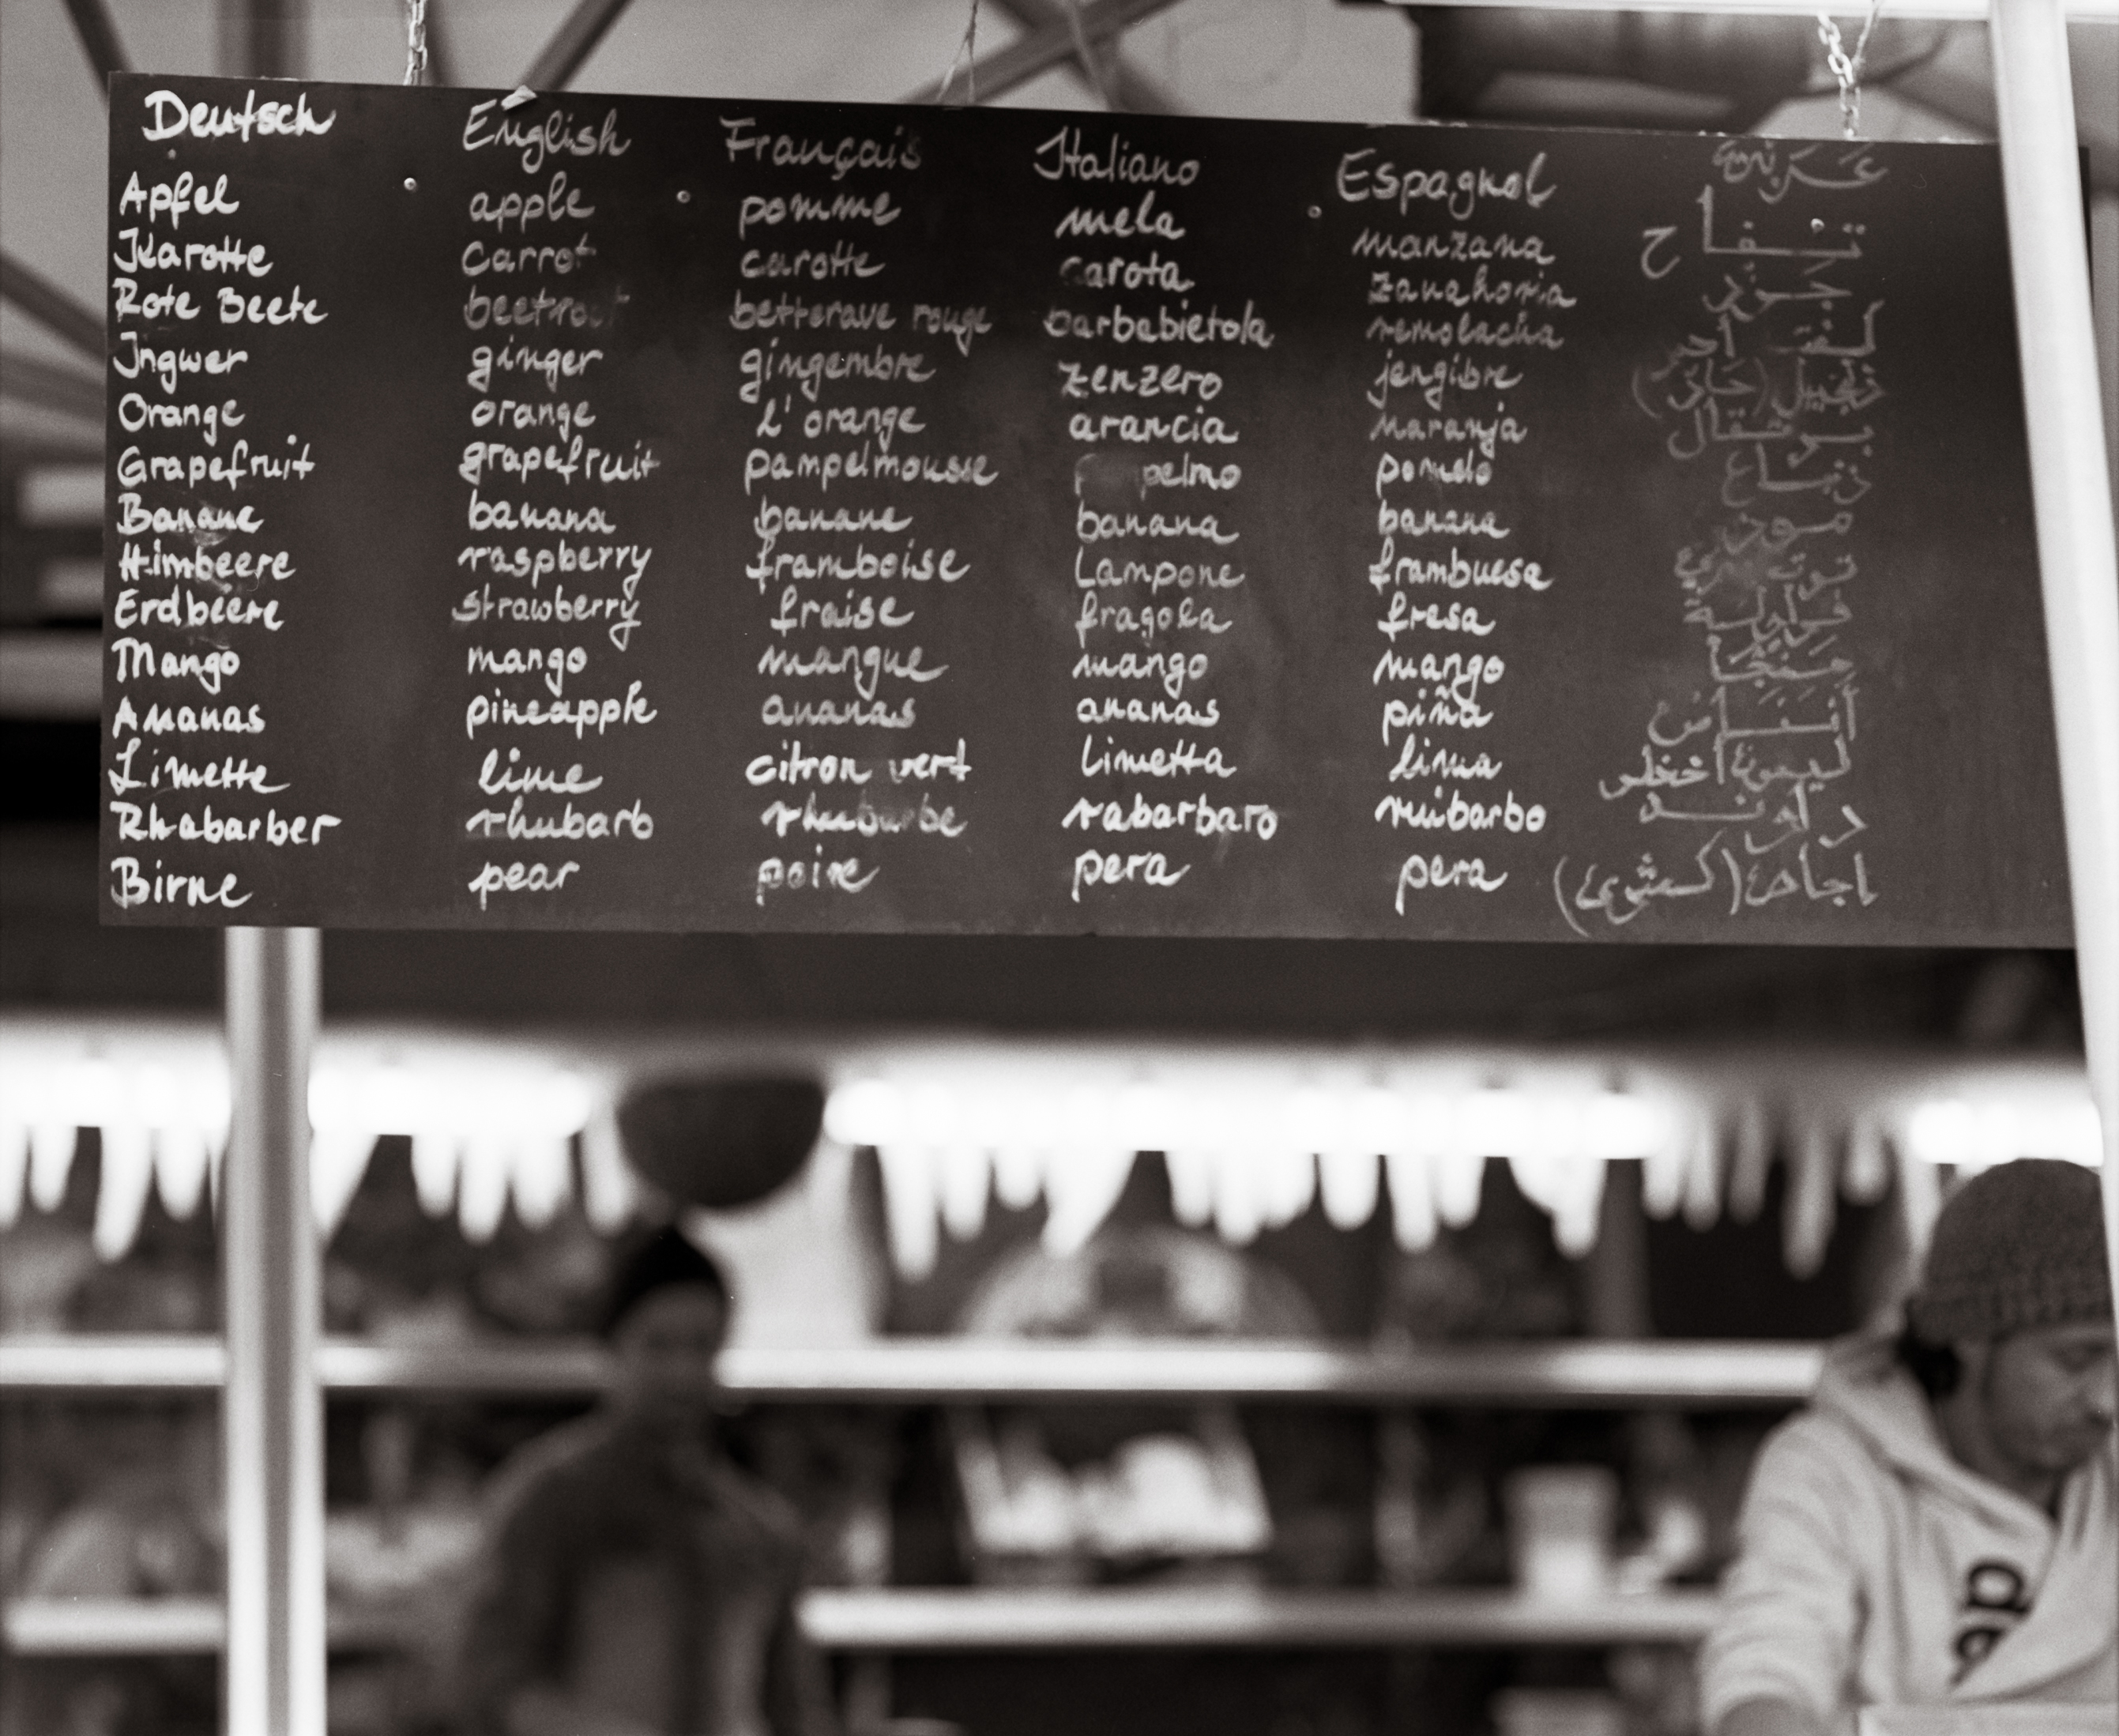 Deutsch English Français Italiano Espagnol عربي
Apfel apple pomme mela manzana تفاح
Karotte carrot carotte carota zanahoria جزر
Rote Beete beetroot betterave rouge barbabietola remolacha أحمر
Ingwer ginger gingembre zenzero jengibre
Orange orange l'orange arancia naranja
Grapefruit grapefruit pampelmousse pomelo
Banane banana banane banana banana موز
Himbeere raspberry framboise Lampone frambuesa
Erdbeere strawberry fraise fragola fresa
Mango mango mangue mango mango
Ananas pineapple ananas ananas piña
Limette lime citron vert limetta lima
Rhabarber rhubarb rhubarbe rabarbaro ruibarbo راوند
Birne pear poire pera pera